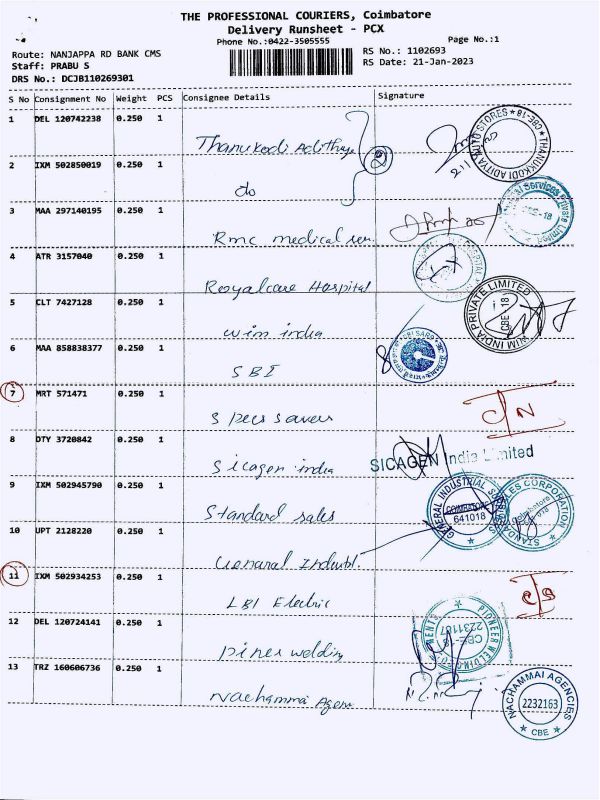 THE PROFESSIONAL COURIERS, Coimbatore
Delivery Runsheet - PCX
Phone No.:0422-3505555
Page No.:1
Route: NANJAPPA RD BANK CMS
RS No.: 1102693
Staff: PRABU S
RS Date: 21-Jan-2023
DRS No.: DCJB110269301
S No Consignment No Weight PCS Consignee Details Signature
1 DEL 120742238 0.250 1
Thanukodi Adithya
THANUKKODI ADITYA AUTO STORES * CBE-18 *
2 IXM 502850019 0.250 1
do
3 MAA 297140195 0.250 1
Rmc medical ser.
Services Private Limited
4 ATR 3157040 0.250 1
Royalcare Hospital
5 CLT 7427128 0.250 1
Wim india
WIM INDIA PRIVATE LIMITED
CBE 18
6 MAA 858838377 0.250 1
SBI
7 MRT 571471 0.250 1
Specs savers
8 DTY 3720842 0.250 1
Sicagen india
SICAGEN India Limited
9 IXM 502945790 0.250 1
Standard sales
STANDARD SALES CORPORATION
10 UPT 2128220 0.250 1
General Industl.
GENERAL INDUSTRIAL
COIMBATORE
641018
11 IXM 502934253 0.250 1
LBI Electric
12 DEL 120724141 0.250 1
piner welding
PIONEER WELDING
CBE-18
2231187
13 TRZ 160606736 0.250 1
Nachammai Agen
NACHAMMAI AGENCIES
2232163
* CBE *